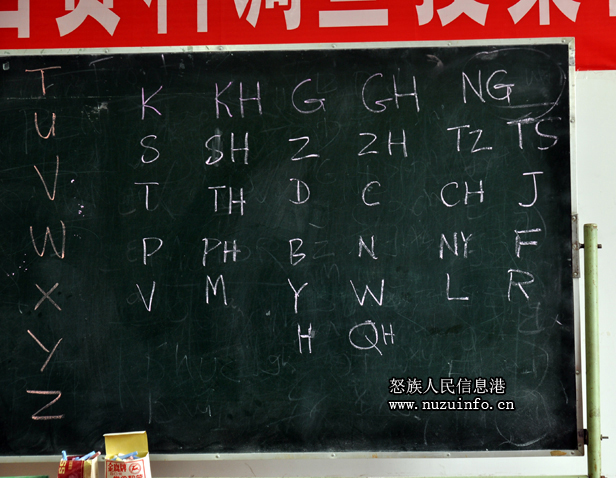 资料调查技术
T
U
V
W
X
Y
Z
K KH G GH NG
S SH Z ZH TZ TS
T TH D C CH J
P PH B N NY F
V M Y W L R
H QH
怒族人民信息港
www.nuzuinfo.cn